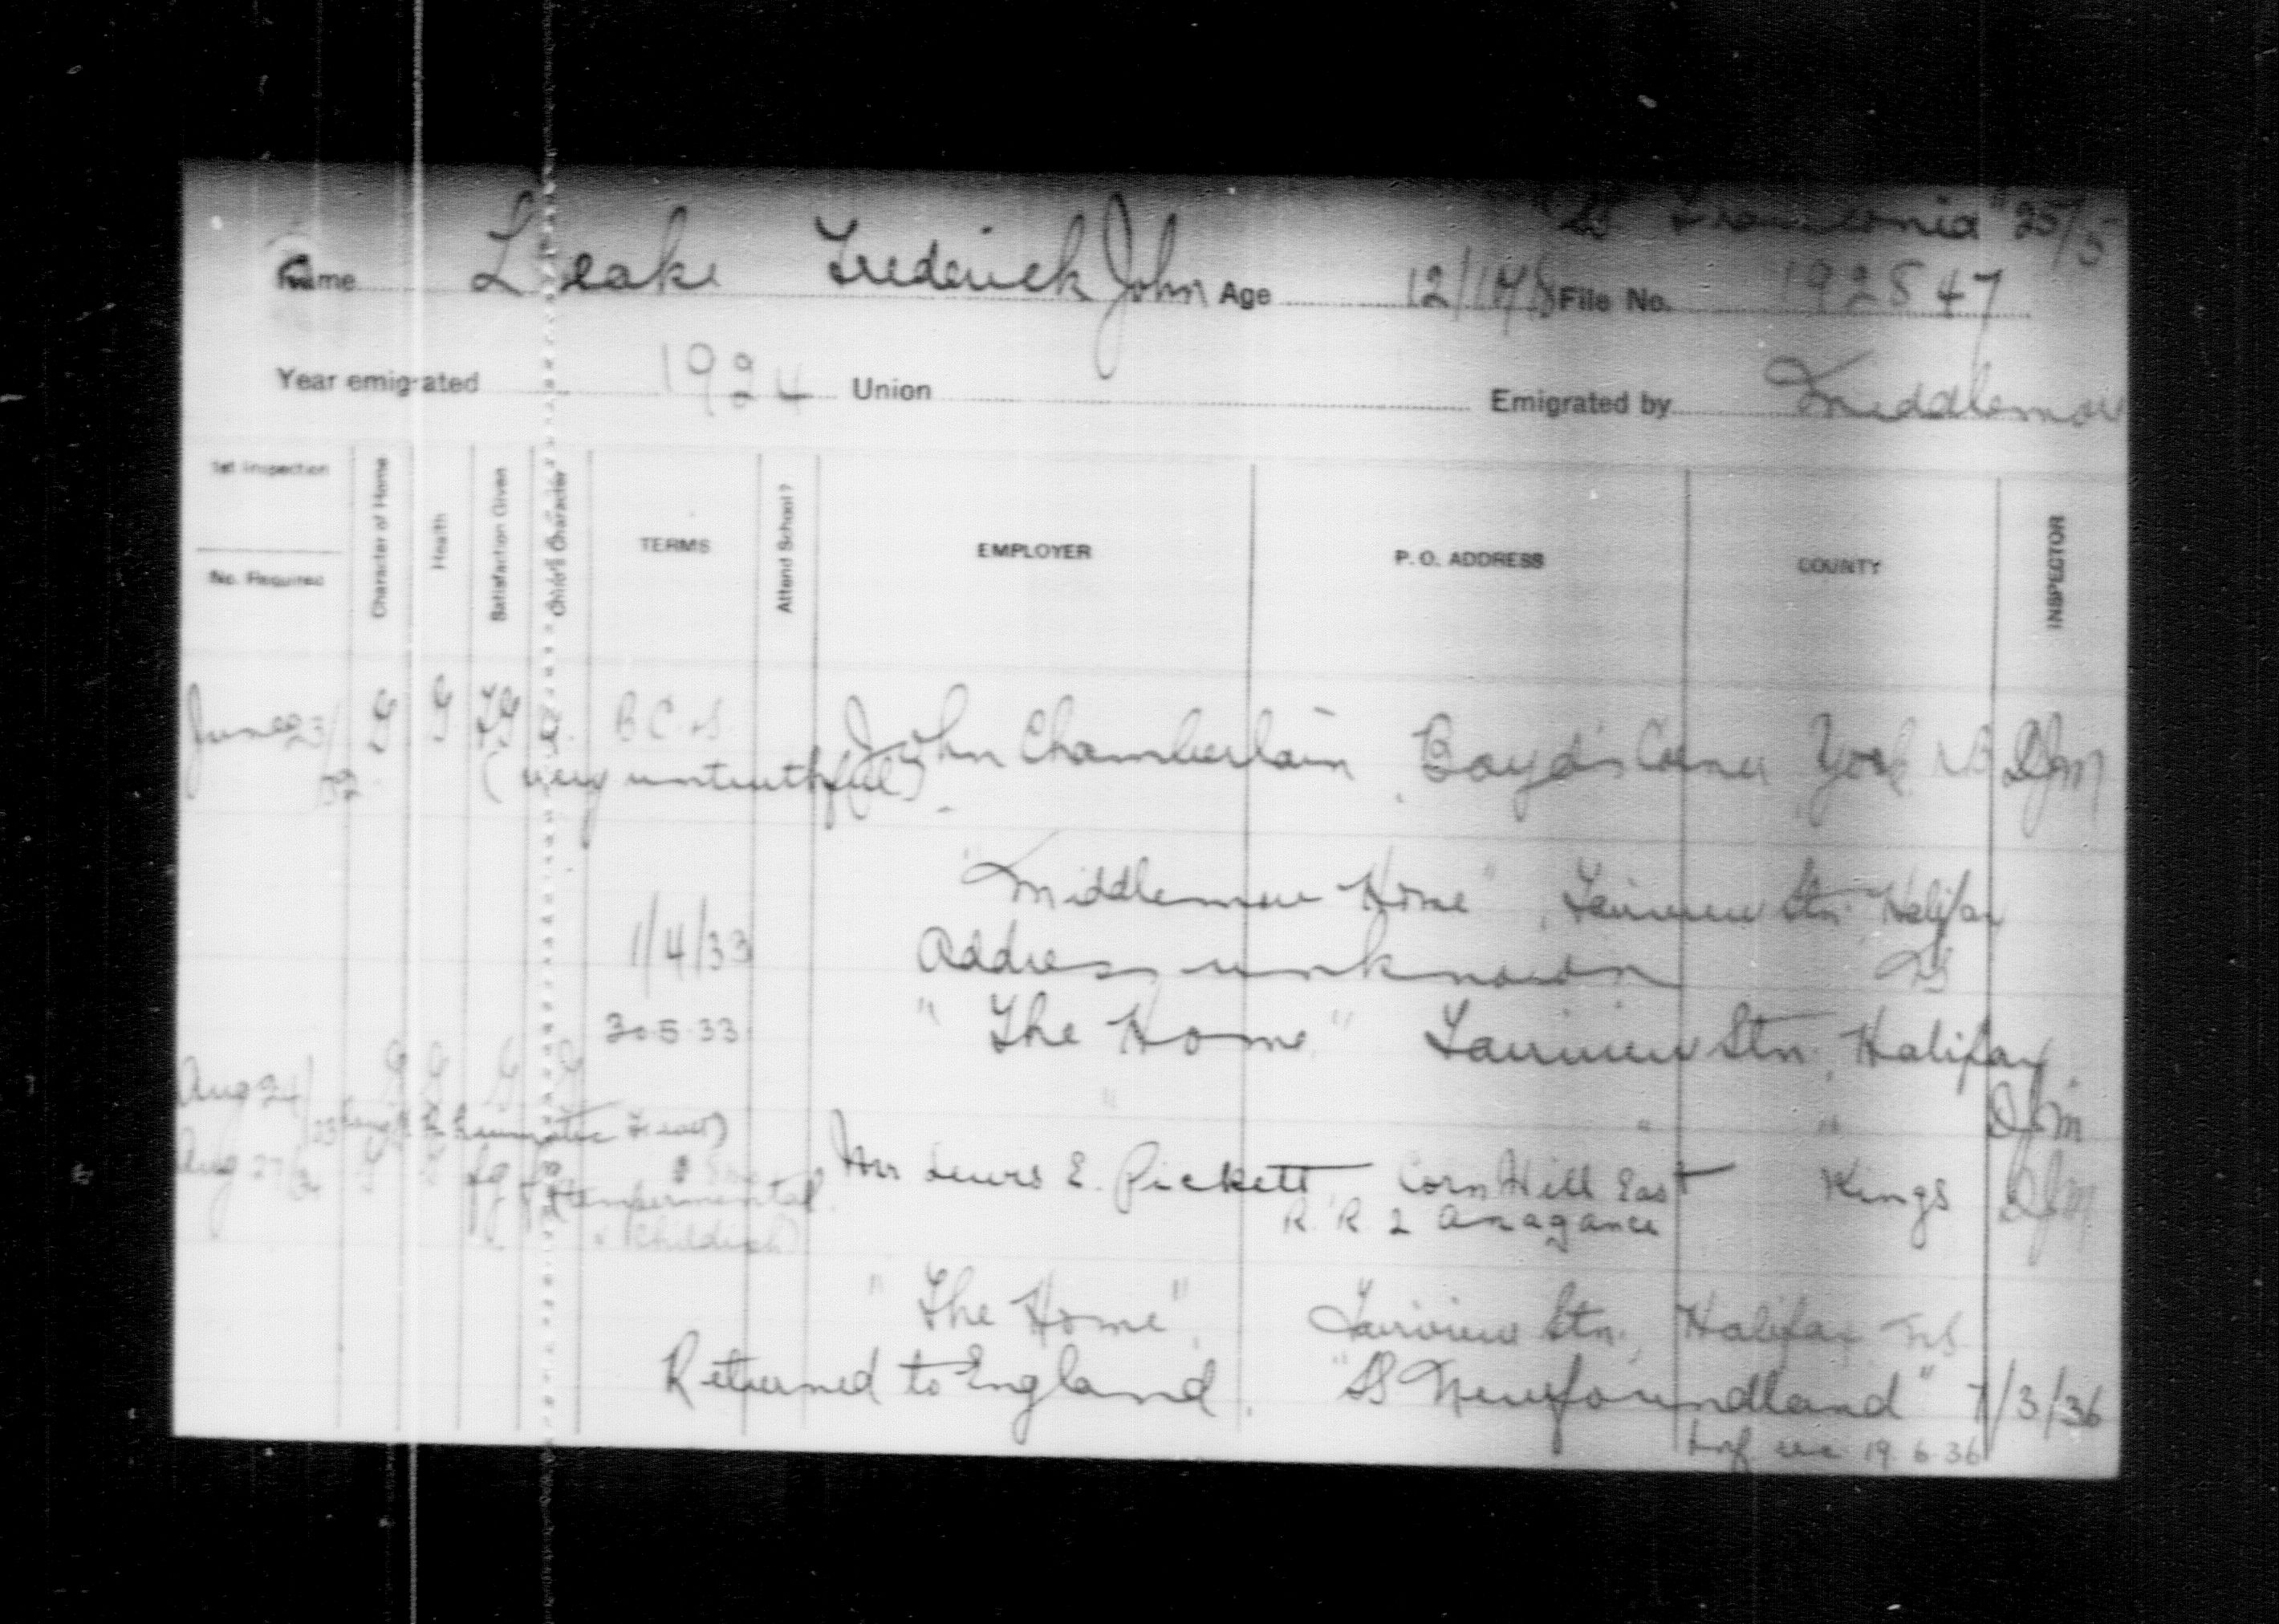 "SS Franconia" 25/5
Name Leake Frederick John Age 12/ File No. 192547
Year emigrated 1924 Union Emigrated by Middlemore
1st Inspection
No. Required
Character of Home
Health
Satisfaction Given
Child's Character
TERMS
Attend School?
EMPLOYER
P. O. ADDRESS
COUNTY
INSPECTOR
June 23/32 G G FG B C & John Chamberlain Boyd's Corner York NB DJM
(very untruthful)
"Middlemore Home" Fairview Stn. Halifax
1/4/33 Address unknown NS
30.5.33 "The Home" Fairview Stn. Halifax
Aug 24/33 G G G G " " " DJM
rheumatic fever)
Aug 27/ G G fg Mr Lewis E. Pickett Corn Hill East Kings DJM
(tempermental R. R. 2 Anagance
& childish)
"The Home" Fairview Stn. Halifax NS
Returned to England. "SS Newfoundland" 7/3/36
19.6.36